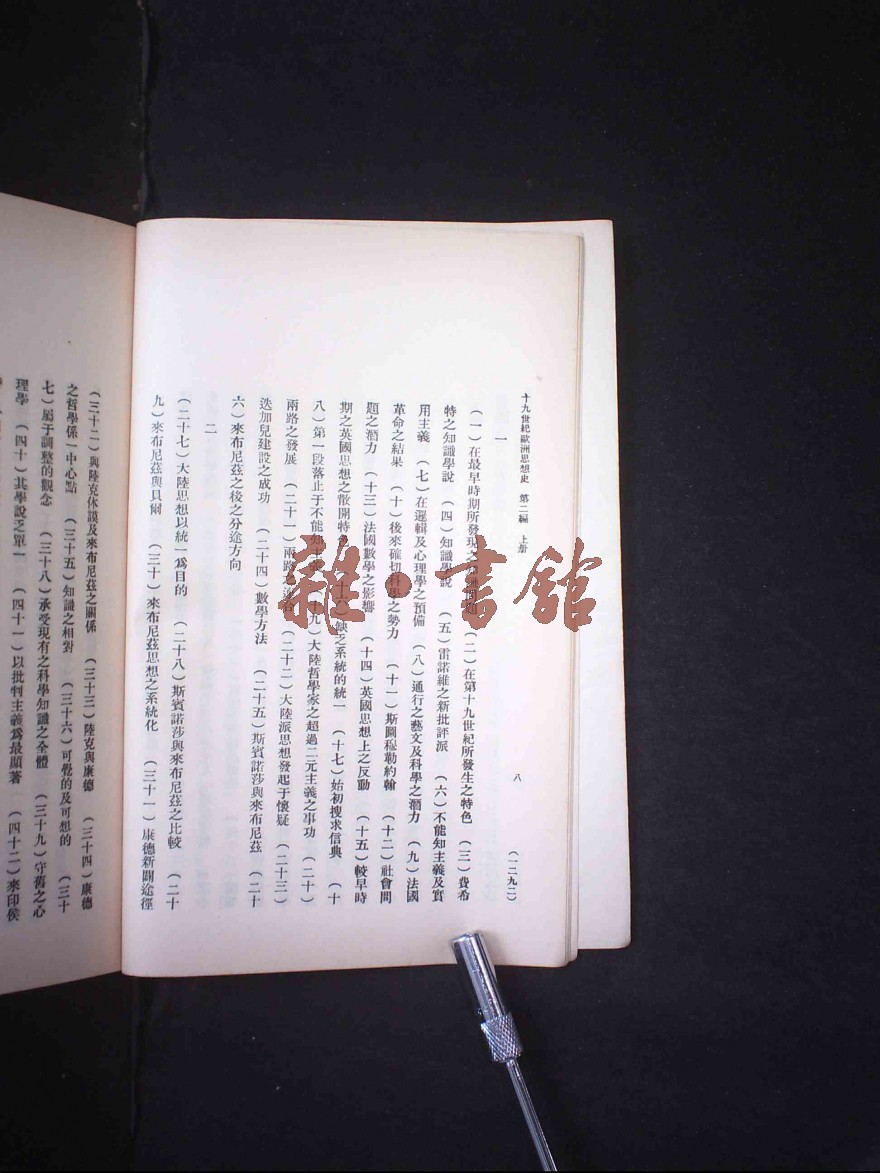 十九世紀歐洲思想史 第二編 上册 八 (一二九二)
一
(一)在最早時期所發現之 (二)在第十九世紀所發生之特色 (三)費希
特之知識學說 (四)知識學說 (五)雷諾維之新批評派 (六)不能知主義及實
用主義 (七)在邏輯及心理學之預備 (八)通行之藝文及科學之潛力 (九)法國
革命之結果 (十)後來確切科學之勢力 (十一)斯圖穆勒約翰 (十二)社會問
題之潛力 (十三)法國數學之影響 (十四)英國思想上之反動 (十五)較早時
期之英國思想之散開特色 (十六)缺乏系統的統一 (十七)始初搜求信典 (十
八)第一段落止于不能知主義 (十九)大陸哲學家之超過二元主義之事功 (二十)
兩路之發展 (二十一)兩路之 (二十二)大陸派思想發起于懷疑 (二十三)
迭加兒建設之成功 (二十四)數學方法 (二十五)斯賓諾莎與來布尼茲 (二十
六)來布尼茲之後之分途方向
二
(二十七)大陸思想以統一爲目的 (二十八)斯賓諾莎與來布尼茲之比較 (二十
九)來布尼茲與貝爾 (三十)來布尼茲思想之系統化 (三十一)康德新闢途徑
(三十二)與陸克休謨及來布尼茲之關係 (三十三)陸克與康德 (三十四)康德
之哲學係一中心點 (三十五)知識之相對 (三十六)可覺的及可想的 (三十
七)屬于調整的觀念 (三十八)承受現有之科學知識之全體 (三十九)守舊之心
理學 (四十)其學說乏單一 (四十一)以批判主義爲最顯著 (四十二)來印侯
雜·書館